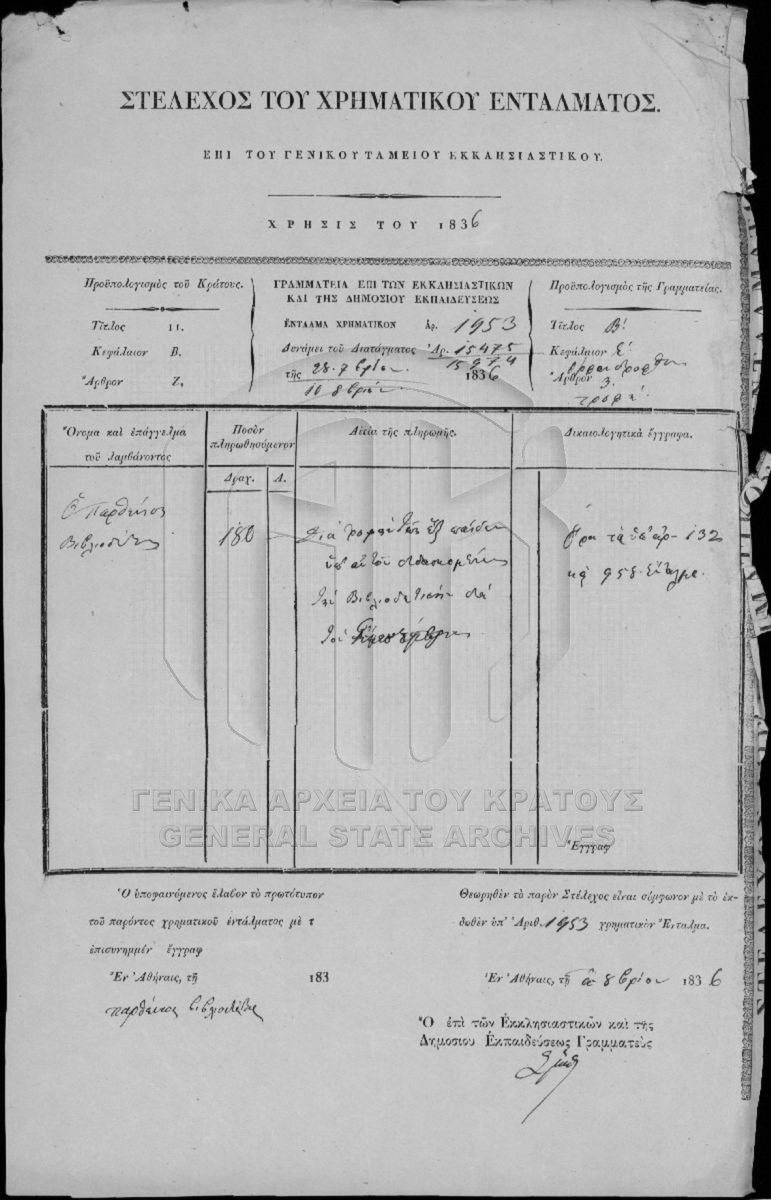 ΣΤΕΛΕΧΟΣ ΤΟΥ ΧΡΗΜΑΤΙΚΟΥ ΕΝΤΑΛΜΑΤΟΣ.
ΕΠΙ ΤΟΥ ΓΕΝΙΚΟΥ ΤΑΜΕΙΟΥ ΕΚΚΛΗΣΙΑΣΤΙΚΟΥ.
ΧΡΗΣΙΣ ΤΟΥ 1836
Προϋπολογισμὸς τοῦ Κράτους.
Τίτλος II.
Κεφάλαιον Β.
Ἄρθρον Ζ.
ΓΡΑΜΜΑΤΕΙΑ ΕΠΙ ΤΩΝ ΕΚΚΛΗΣΙΑΣΤΙΚΩΝ
ΚΑΙ ΤΗΣ ΔΗΜΟΣΙΟΥ ΕΚΠΑΙΔΕΥΣΕΩΣ
ΕΝΤΑΛΜΑ ΧΡΗΜΑΤΙΚΟΝ Ἀρ. 1953
Δυνάμει τοῦ Διατάγματος Ἀρ. 15475
15974
τῆς 28. 7βρίου 1836
8βρίου
Προϋπολογισμὸς τῆς Γραμματείας.
Τίτλος Β.
Κεφάλαιον Ε.
Ἄρθρον 3.
τροφὴ
Ὄνομα καὶ ἐπάγγελμα
τοῦ λαμβάνοντος
Ποσὸν
πληρωθησόμενον
Δραχ. Λ.
Αἰτία τῆς πληρωμῆς.
Δικαιολογητικὰ ἔγγραφα.
Ὁ Παρθένιος
Βιβλιοδέτης
180
Διὰ τροφὴν τῶν ἓξ παίδων
ὑπ' αὐτοῦ διδασκομένων
τὴν Βιβλιοδετικὴν διὰ
Ὅρα τὰ ὑπ' ἀρ. 132
Ἐγγραφ
ΓΕΝΙΚΑ ΑΡΧΕΙΑ ΤΟΥ ΚΡΑΤΟΥΣ
GENERAL STATE ARCHIVES
Ὁ ὑποφαινόμενος ἔλαβον τὸ πρωτότυπον
τοῦ παρόντος χρηματικοῦ ἐντάλματος μὲ τ
ἐπισυνημμέν ἔγγραφ
Ἐν Ἀθήναις, τῇ 183
παρθένιος βιβλιοδέτης
Θεωρηθὲν τὸ παρὸν Στέλεχος εἶναι σύμφωνον μὲ τὸ ἐκ-
δωθὲν ὑπ' Ἀριθ. 1953 χρηματικὸν Ἔνταλμα.
Ἐν Ἀθήναις, τῇ 8βρίου 1836
Ὁ ἐπὶ τῶν Ἐκκλησιαστικῶν καὶ τῆς
Δημοσίου Ἐκπαιδεύσεως Γραμματεὺς